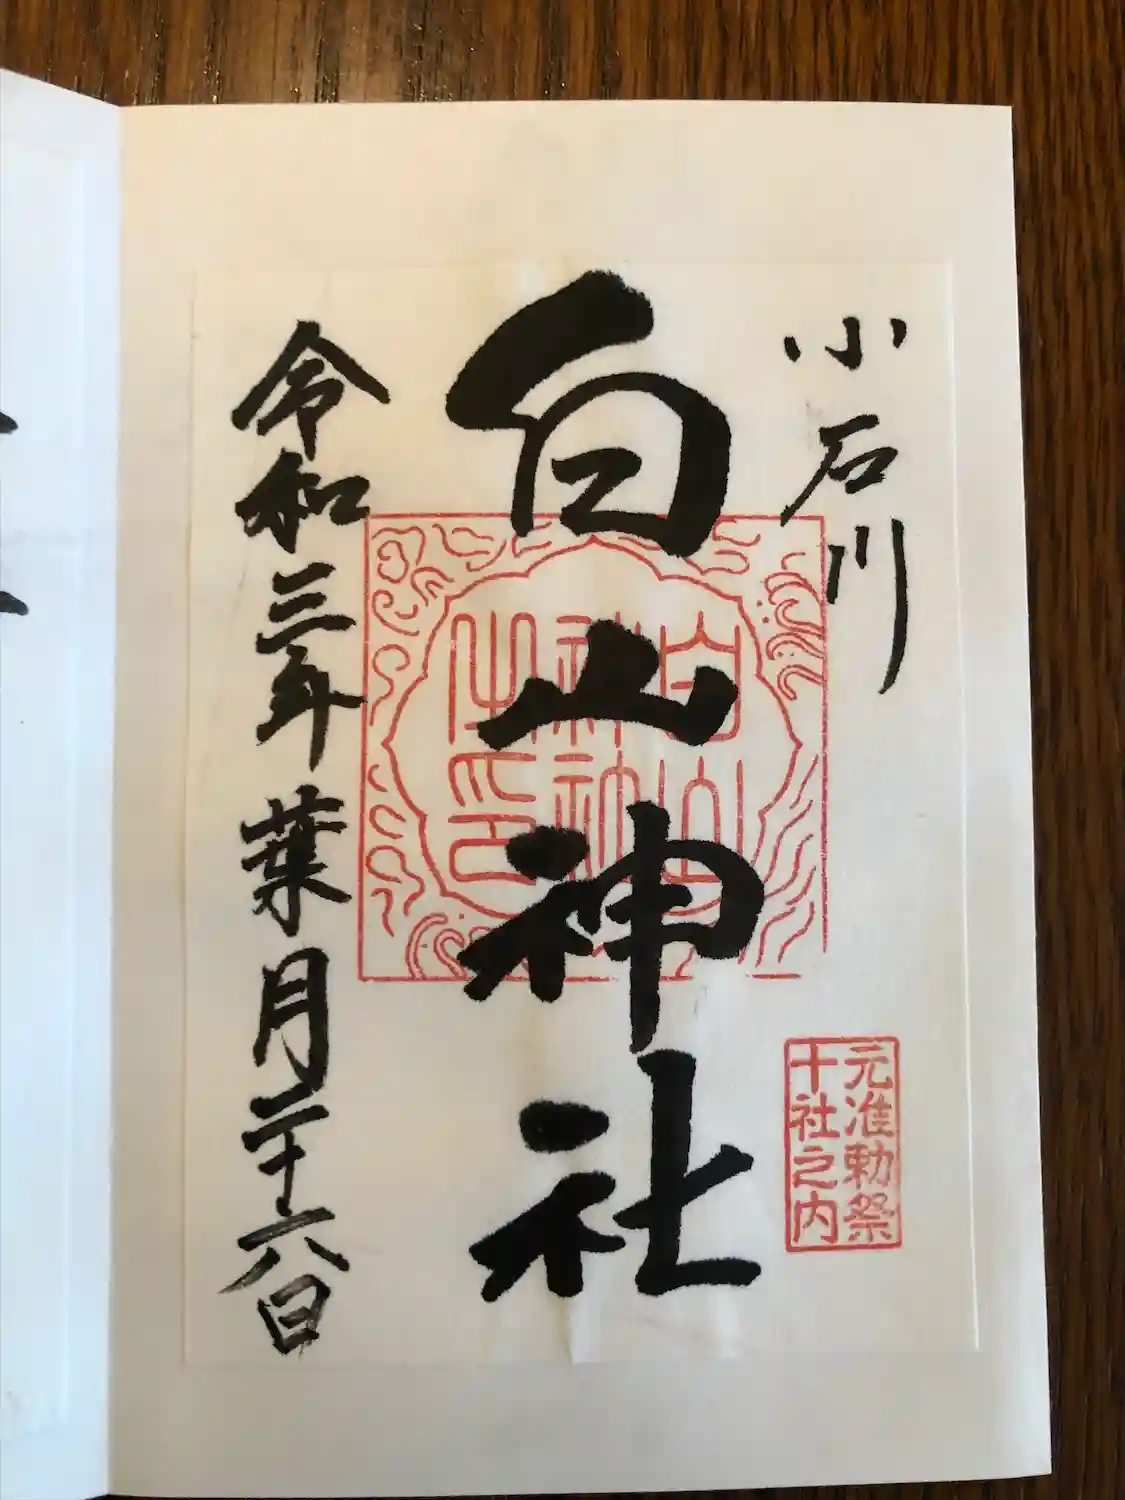 小石川
元准勅祭
十社之内
白山神社
白山
神社
之印
令和三年葉月二十六日